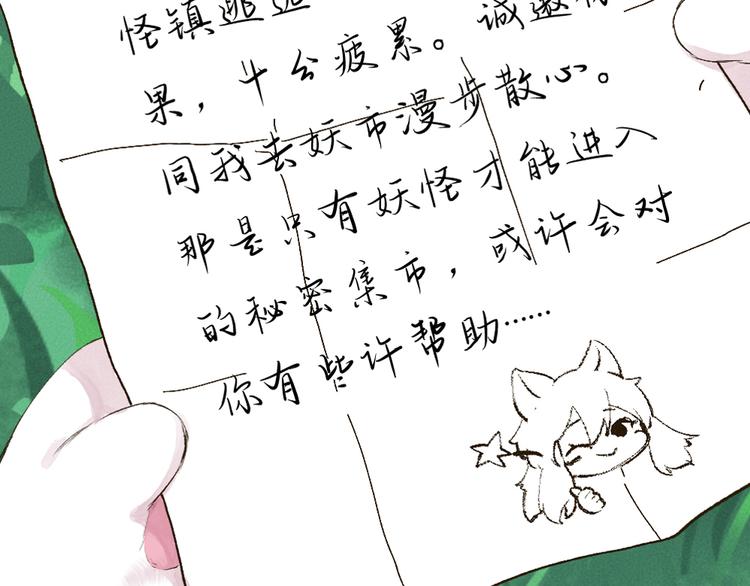 怪镇逃避
果，十分疲累。诚邀你
同我去妖市漫步散心。
那是只有妖怪才能进入
的秘密集市，或许会对
你有些许帮助……